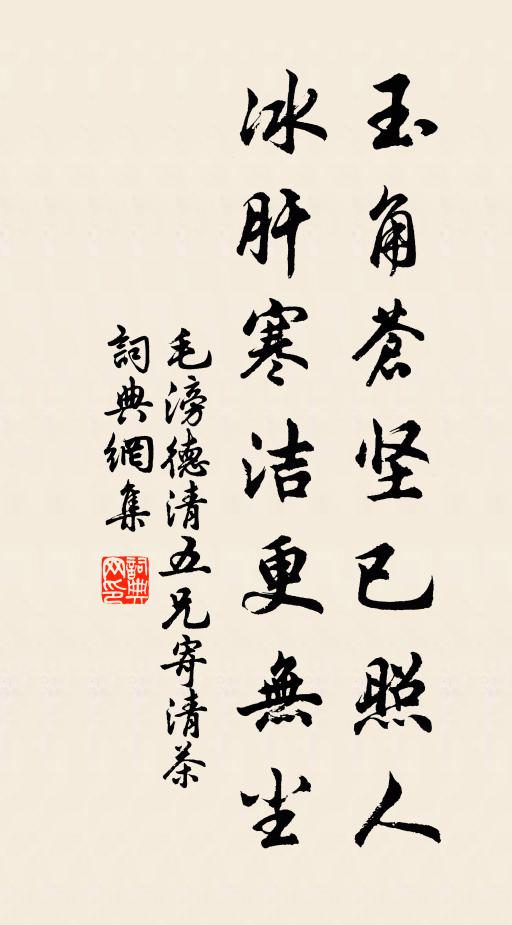 玉角蒼坚已照人
冰肝寒洁更無尘
毛滂德清五兄寄清茶
詞典網集
詞典网印